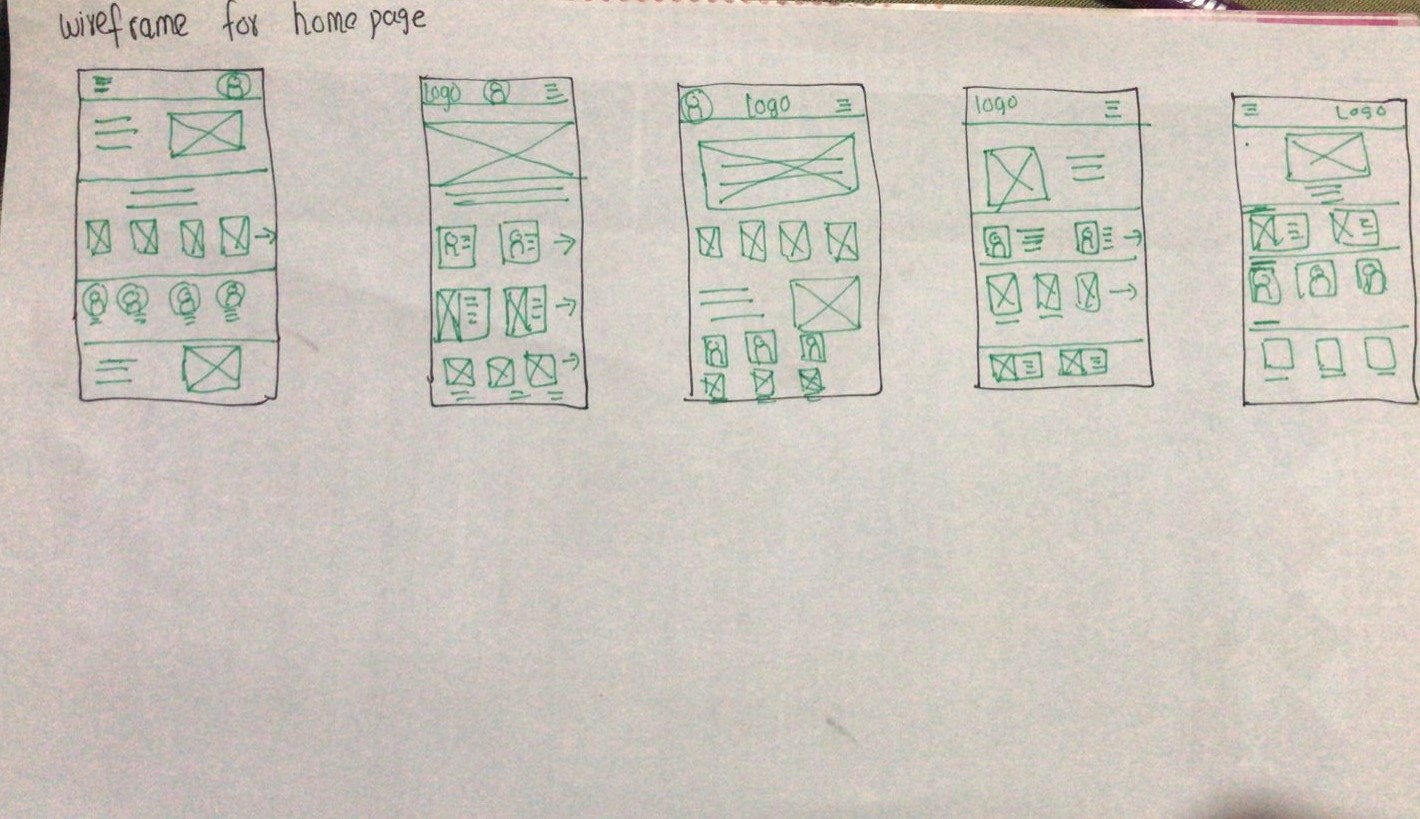 wireframe for home page
logo
logo
logo
Logo